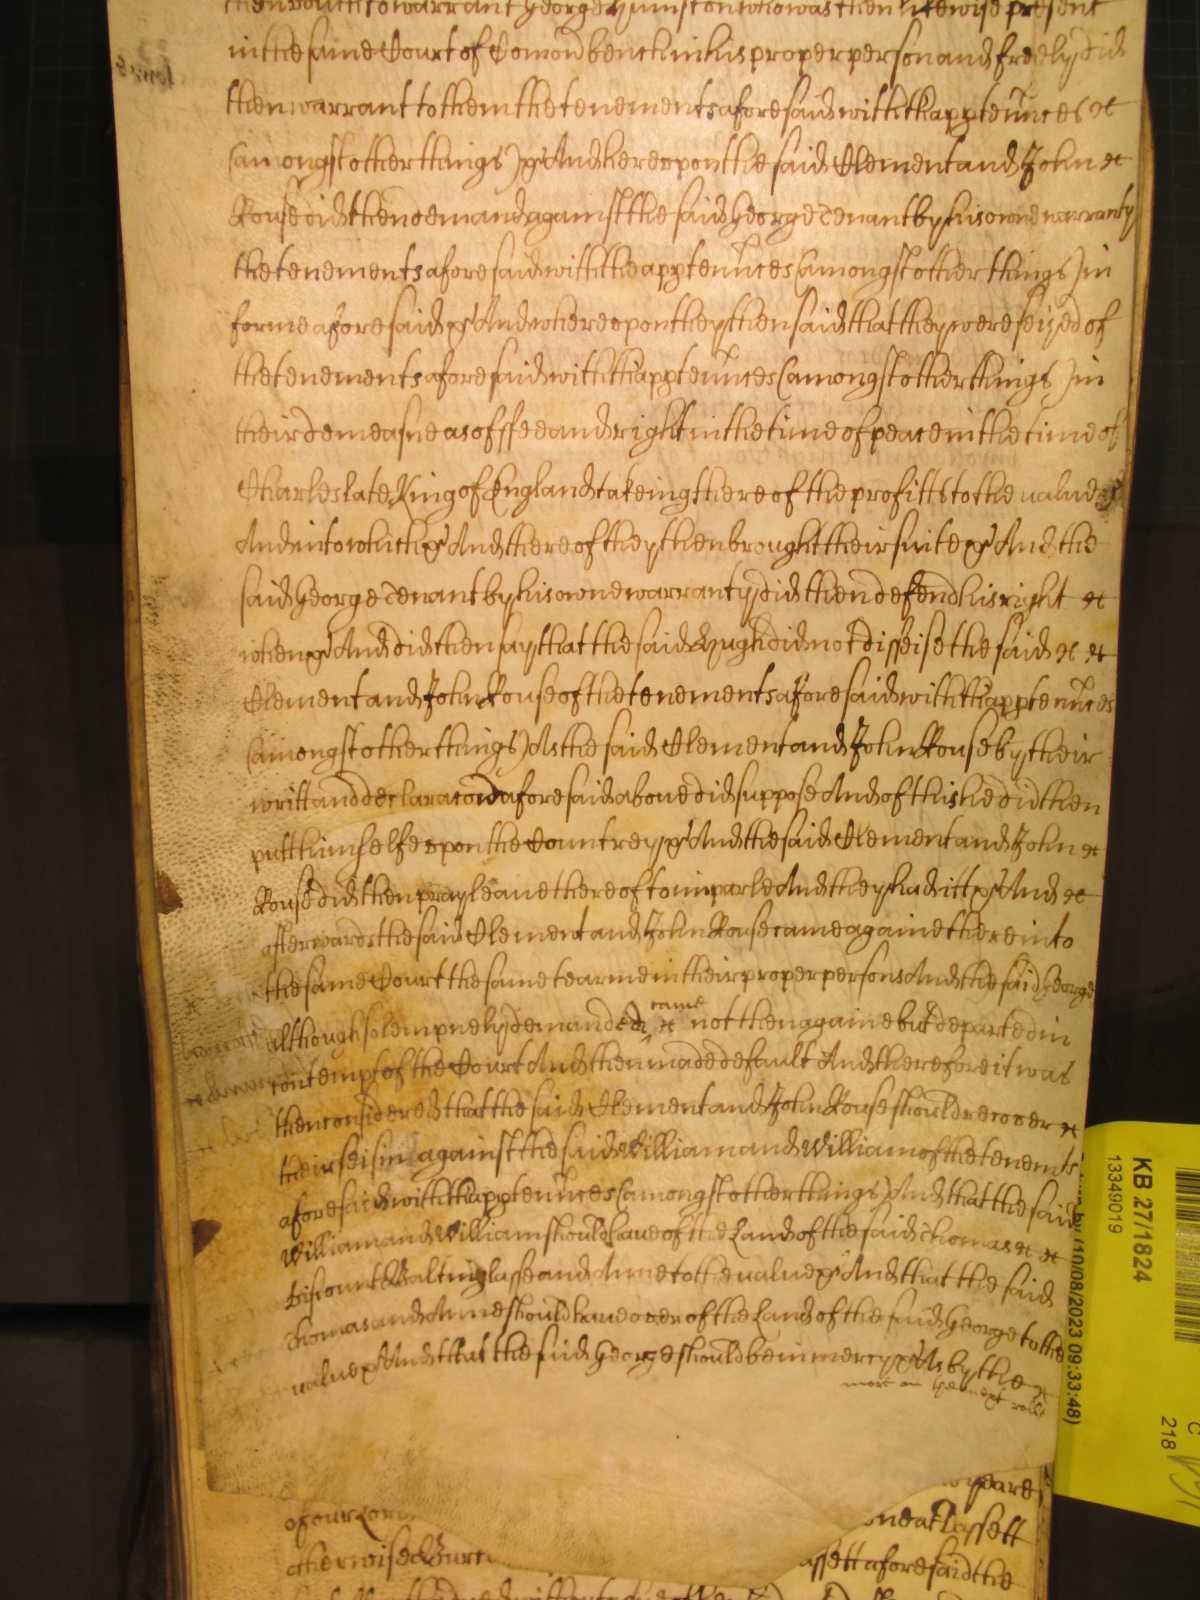 then vouch to warrant George Humston who was then likewise present
in the same Court of Comon bench in his proper person and freely did
then warrant to them the tenements aforesaid with thapptennces &c
(amongst other things) &c And hereupon the said Clement and John &c
Rouse did then demand against the said George Tenant by his owne warranty
the tenements aforesaid with the apptennces (amongst other things) in
forme aforesaid &c And whereupon they then said that they were seised of
the tenements aforesaid with th'apptennces (amongst other things) in
their demeasne as of ffee and right in the time of peace in the time of
Charles late King of England takeing thereof the profitts to the value &c
And into which &c And thereof they then brought their suite &c And the
said George Tenant by his owne warranty did then defend his right &c
when &c And did then say that the said Hugh did not disseise the said &c &c
Clement and John Rouse of the tenements aforesaid with th'apptennces
(amongst other things) As the said Clement and John Rouse by their
writt and declaracon aforesaid above did suppose And of this he did then
putt himselfe upon the Countrey &c And the said Clement and John &c
Rouse did then pray leave thereof to imparle And they had itt &c And &c
afterwards the said Clement and John Rouse came againe there into
the same Court the same tearme in their proper persons And the said George
although solempnely demanded &c came not then againe but departed in
contempt of the Court And then made default And therefore it was
then considered that the said Clement and John Rouse should recover &c
their seisin against the said William and William of the tenemts
aforesaid with thapptennces (amongst other things) And that the said
William and William should have of the Land of the said Thomas &c &c
Viscount Baltinglasse and Anne to the value &c And that the said
Thomas and Anne should have over of the Land of the said George to the
value &c And that the said George should be in mercy &c As by the &c
more on the next roll
yeare
of our Lord
one at Lyssett
otherwise
ssett aforesaid the
KB 27/1824
13349019
(10/08/2023 09:33:48)
218